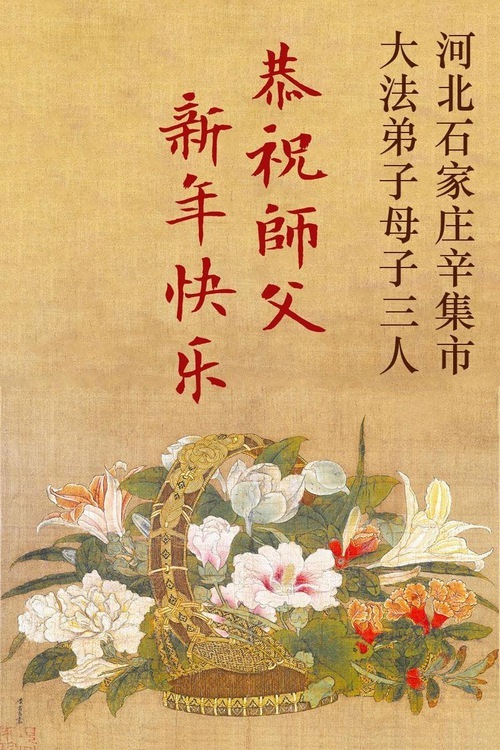 河北石家庄辛集市
大法弟子母子三人
恭祝師父
新年快乐